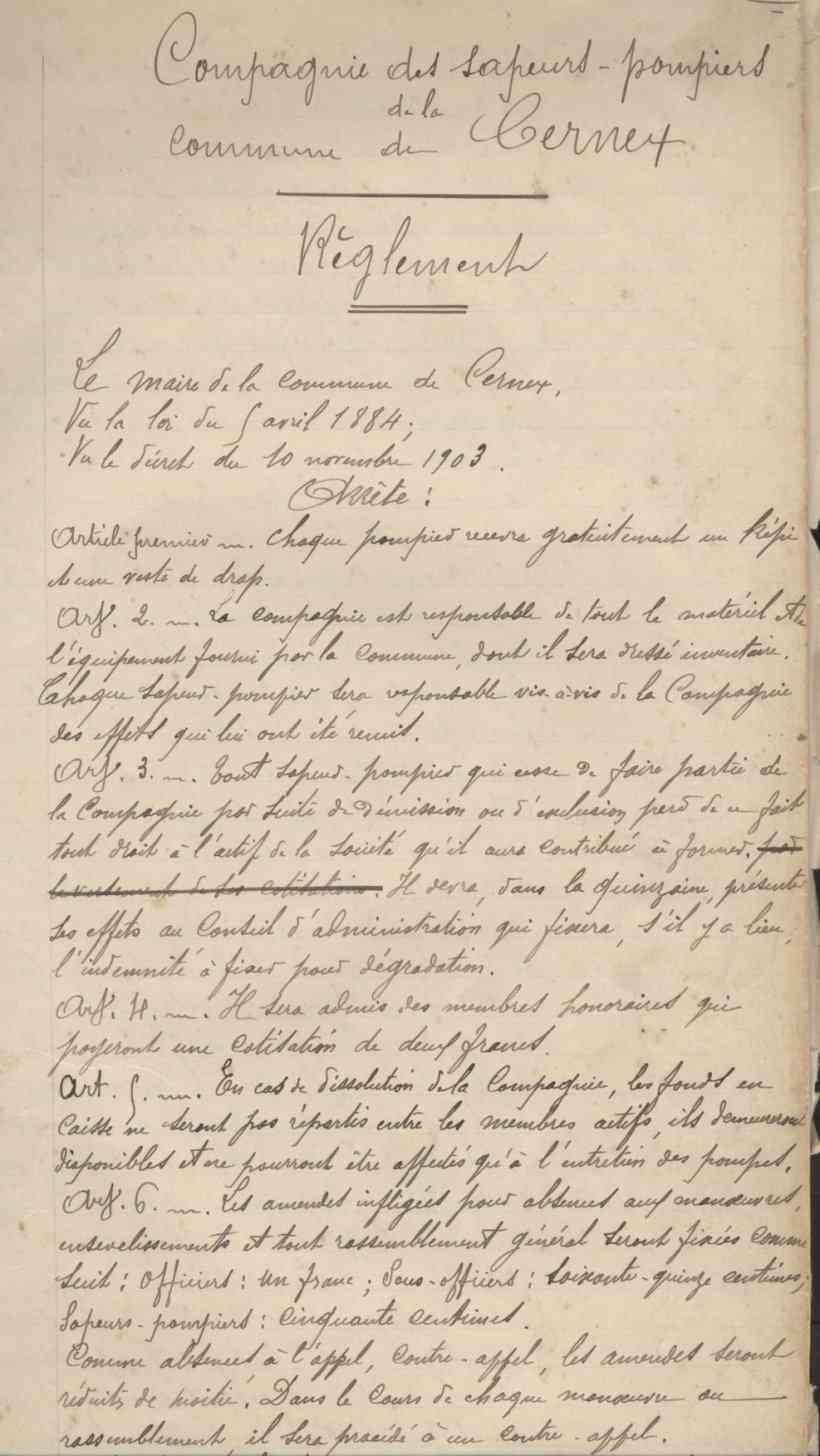 Compagnie des sapeurs-pompiers
de la
commune de Cernex
Règlement
Le maire de la commune de Cernex,
Vu la loi du 5 avril 1884;
Vu le décret du 10 novembre 1903.
Arrête :
Article premier _. Chaque pompier recevra gratuitement un képi
et une veste de drap.
Art. 2. _. La compagnie est responsable de tout le matériel et de
l'équipement fourni par la commune, dont il sera dressé inventaire.
Chaque sapeur-pompier sera responsable vis-à-vis de la Compagnie
des effets qui lui ont été remis.
Art. 3. _. Tout sapeur-pompier qui cesse de faire partie de
la Compagnie par suite de démission ou d'exclusion perd de ce fait
tout droit à l'actif de la société qu'il aura contribué à former, par
le versement de ses cotisations. Il devra, dans la quinzaine, présenter
ses effets au Conseil d'administration qui fixera, s'il y a lieu,
l'indemnité à fixer pour dégradation.
Art. 4. _. Il sera admis des membres honoraires qui
payeront une cotisation de deux francs.
Art. 5. _. En cas de dissolution de la Compagnie, les fonds en
caisse ne seront pas répartis entre les membres actifs, ils demeureront
disponibles et ne pourront être affectés qu'à l'entretien des pompes.
Art. 6. _. Les amendes infligées pour absences aux manœuvres,
ensevelissements et tout rassemblement général seront fixées comme
suit : Officiers : un franc ; Sous-officiers : soixante-quinze centimes;
Sapeurs-pompiers : cinquante centimes.
Comme absences à l'appel, contre-appel, les amendes seront
réduits de moitié. Dans le cours de chaque manœuvre ou
rassemblement, il sera procédé à un contre-appel.